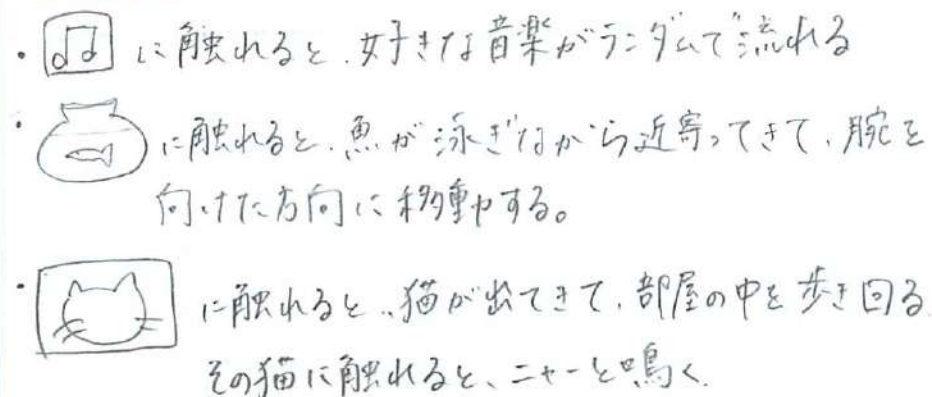 ・ に触れると、好きな音楽がランダムで流れる
・ に触れると、魚が泳ぎながら近寄ってきて、腕を
向けた方向に移動する。
・ に触れると、猫が出てきて、部屋の中を歩き回る
その猫に触れると、ニャーと鳴く。